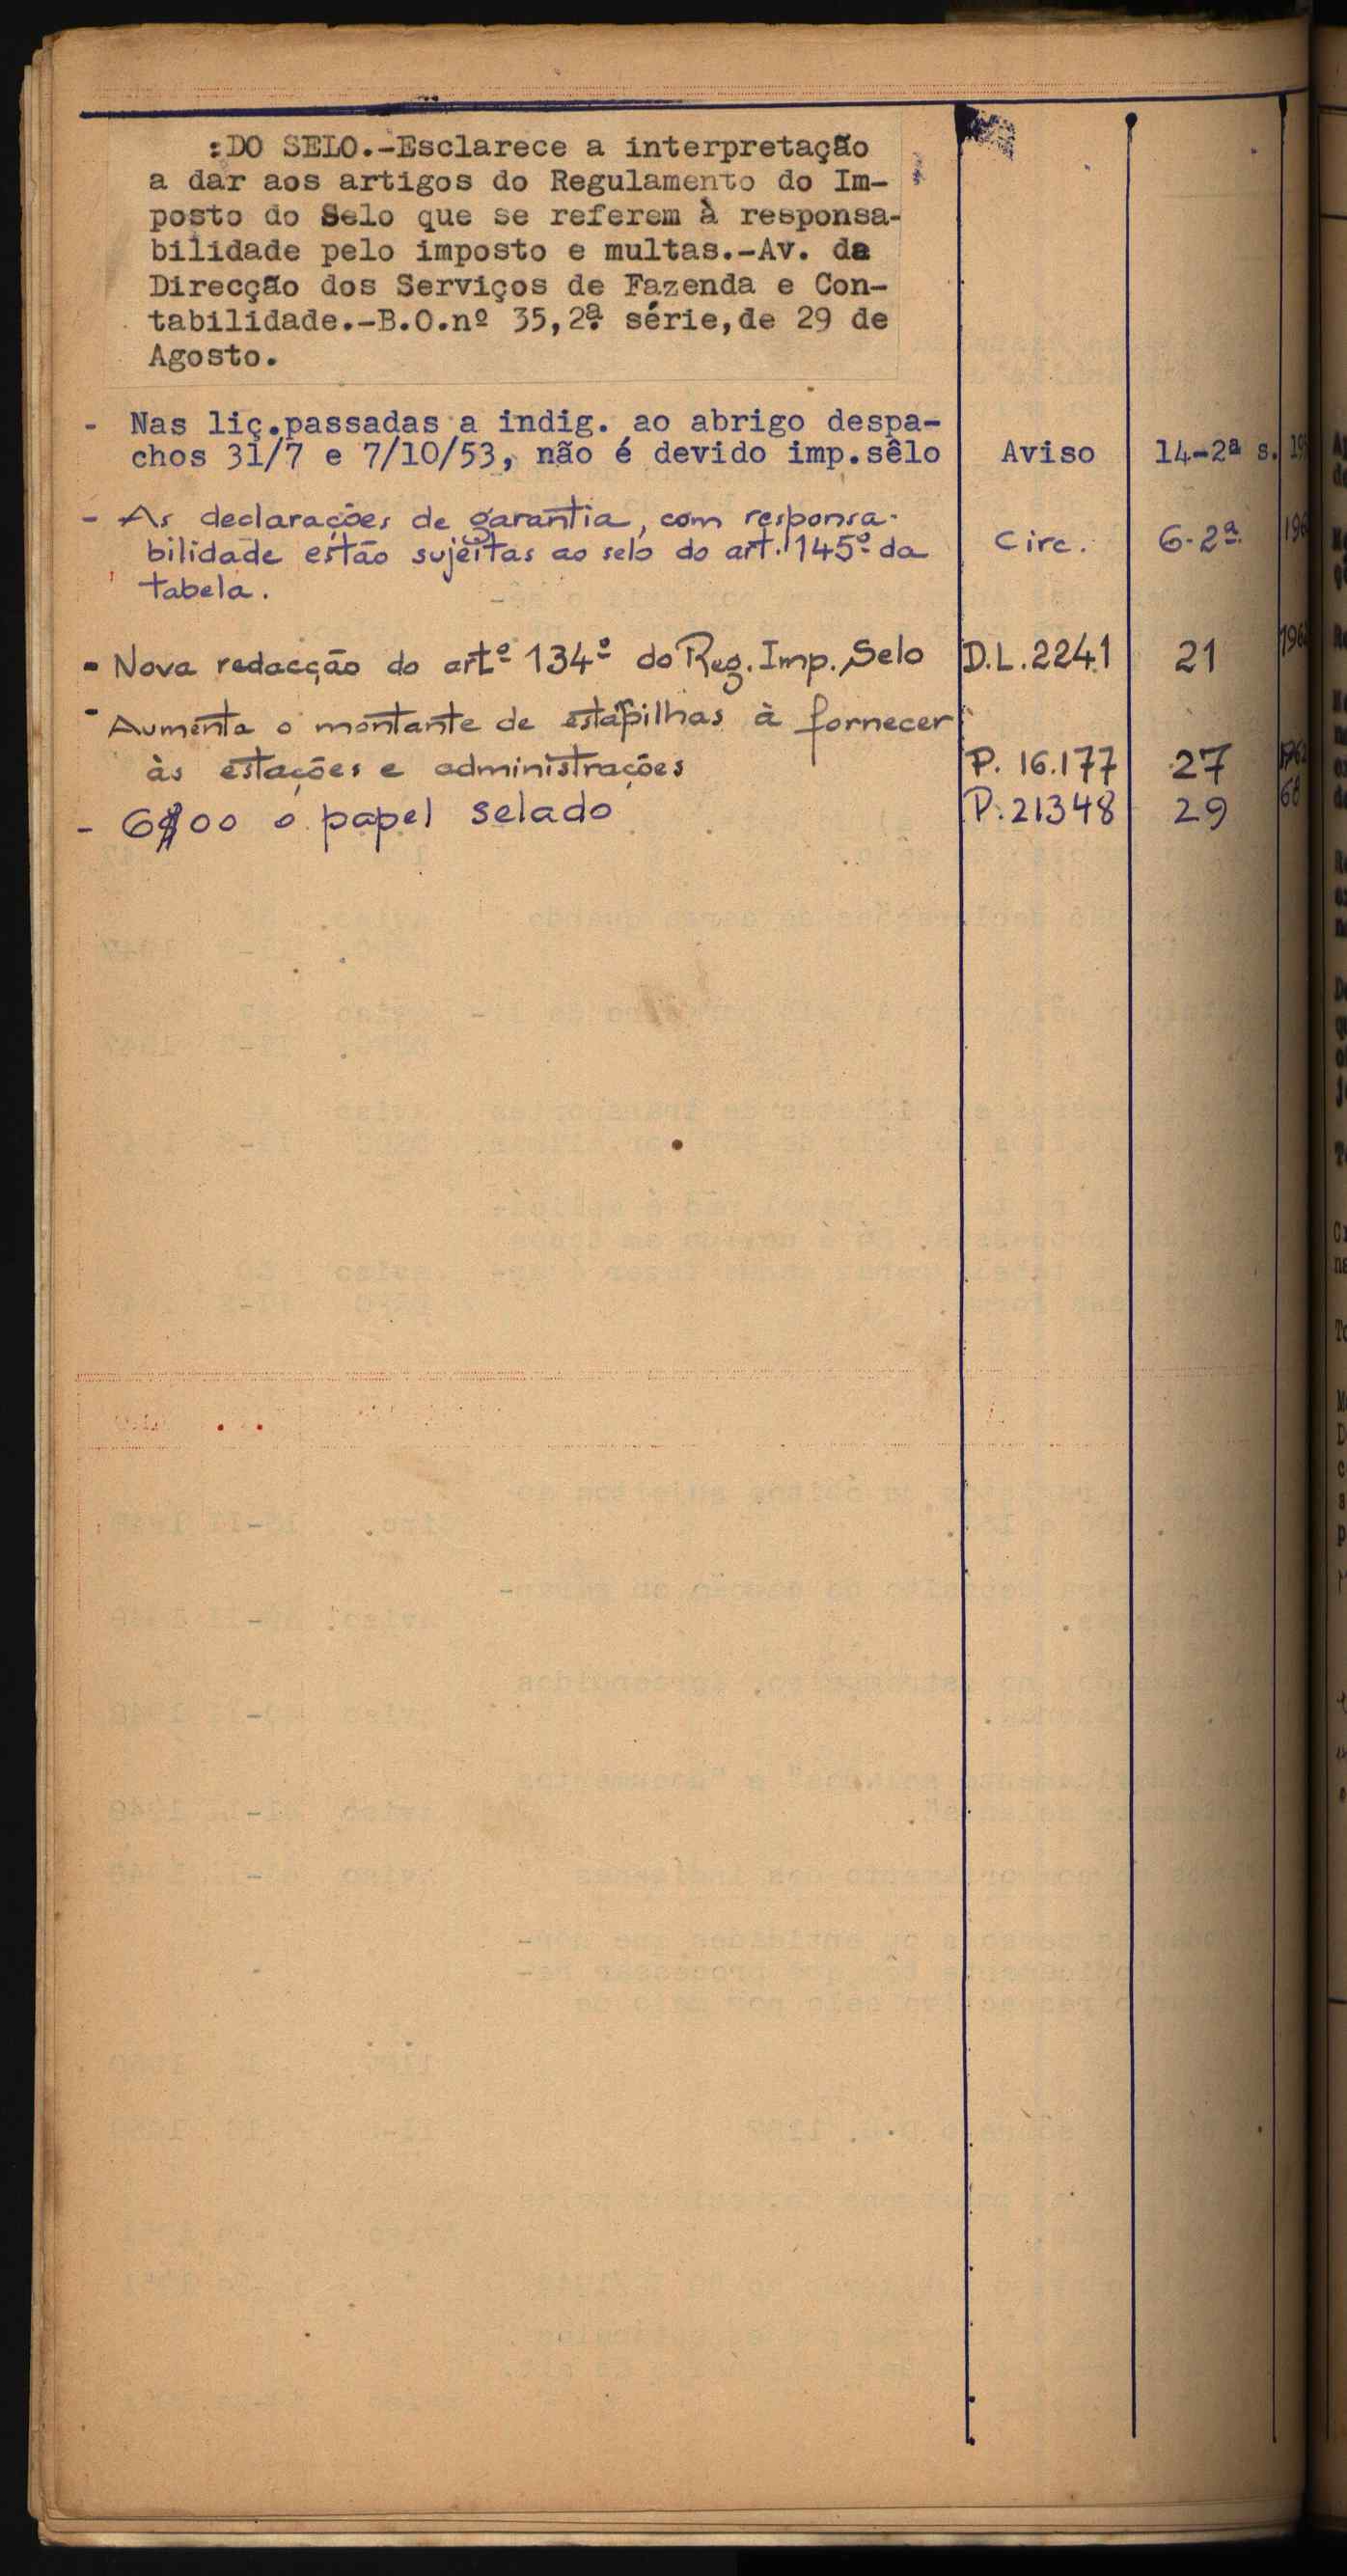 :DO SELO.-Esclarece a interpretação
a dar aos artigos do Regulamento do Im-
posto do Selo que se referem à responsa-
bilidade pelo imposto e multas.-Av. da
Direcção dos Serviços de Fazenda e Con-
tabilidade.-B.O.nº 35,2ª série,de 29 de
Agosto.
- Nas liç.passadas a indig. ao abrigo despa-
chos 31/7 e 7/10/53, não é devido imp.sêlo Aviso 14-2ª s.
- As declarações de garantia, com responsa-
bilidade estão sujeitas ao selo do art. 145º da Circ. 6-2ª
tabela.
- Nova redacção do artº 134º do Reg. Imp. Selo D.L. 2241 21
- Aumenta o montante de estampilhas à fornecer
às estações e administrações P. 16.177 27
- 6$00 o papel selado P. 21348 29 68